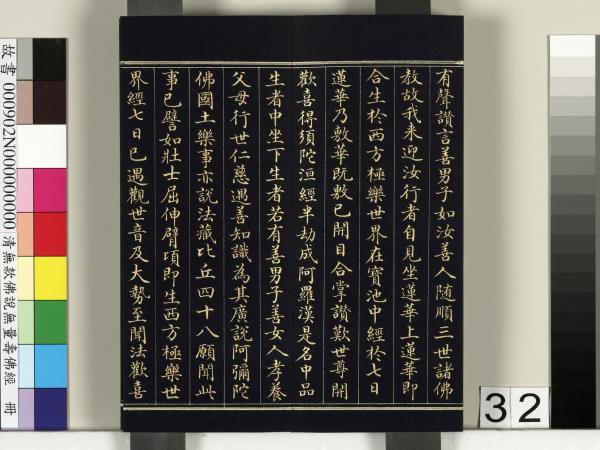 有聲讚言善男子如汝善人隨順三世諸佛
教故我来迎汝行者自見坐蓮華上蓮華即
合生於西方極樂世界在寶池中經於七日
蓮華乃敷華既敷已開目合掌讚歎世尊聞
歡喜得須陀洹經半劫成阿羅漢是名中品
生者中坐下生者若有善男子善女人孝養
父母行世仁慈遇善知識為其廣說阿彌陀
佛國土樂事亦說法藏比丘四十八願聞此
事已譬如壯士屈伸臂頃即生西方極樂世
界經七日已遇觀世音及大勢至聞法歡喜
故書 000902N000000000 清無款佛說無量壽佛經 冊
32